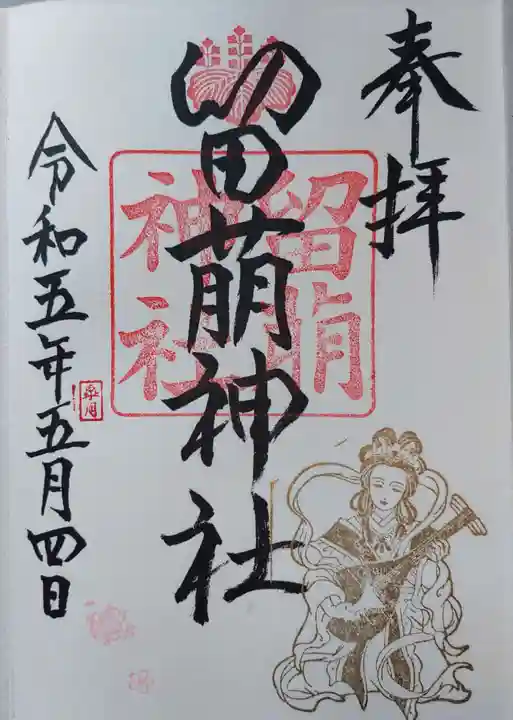 奉拝
留萌神社
留萌
神社
令和五年五月四日